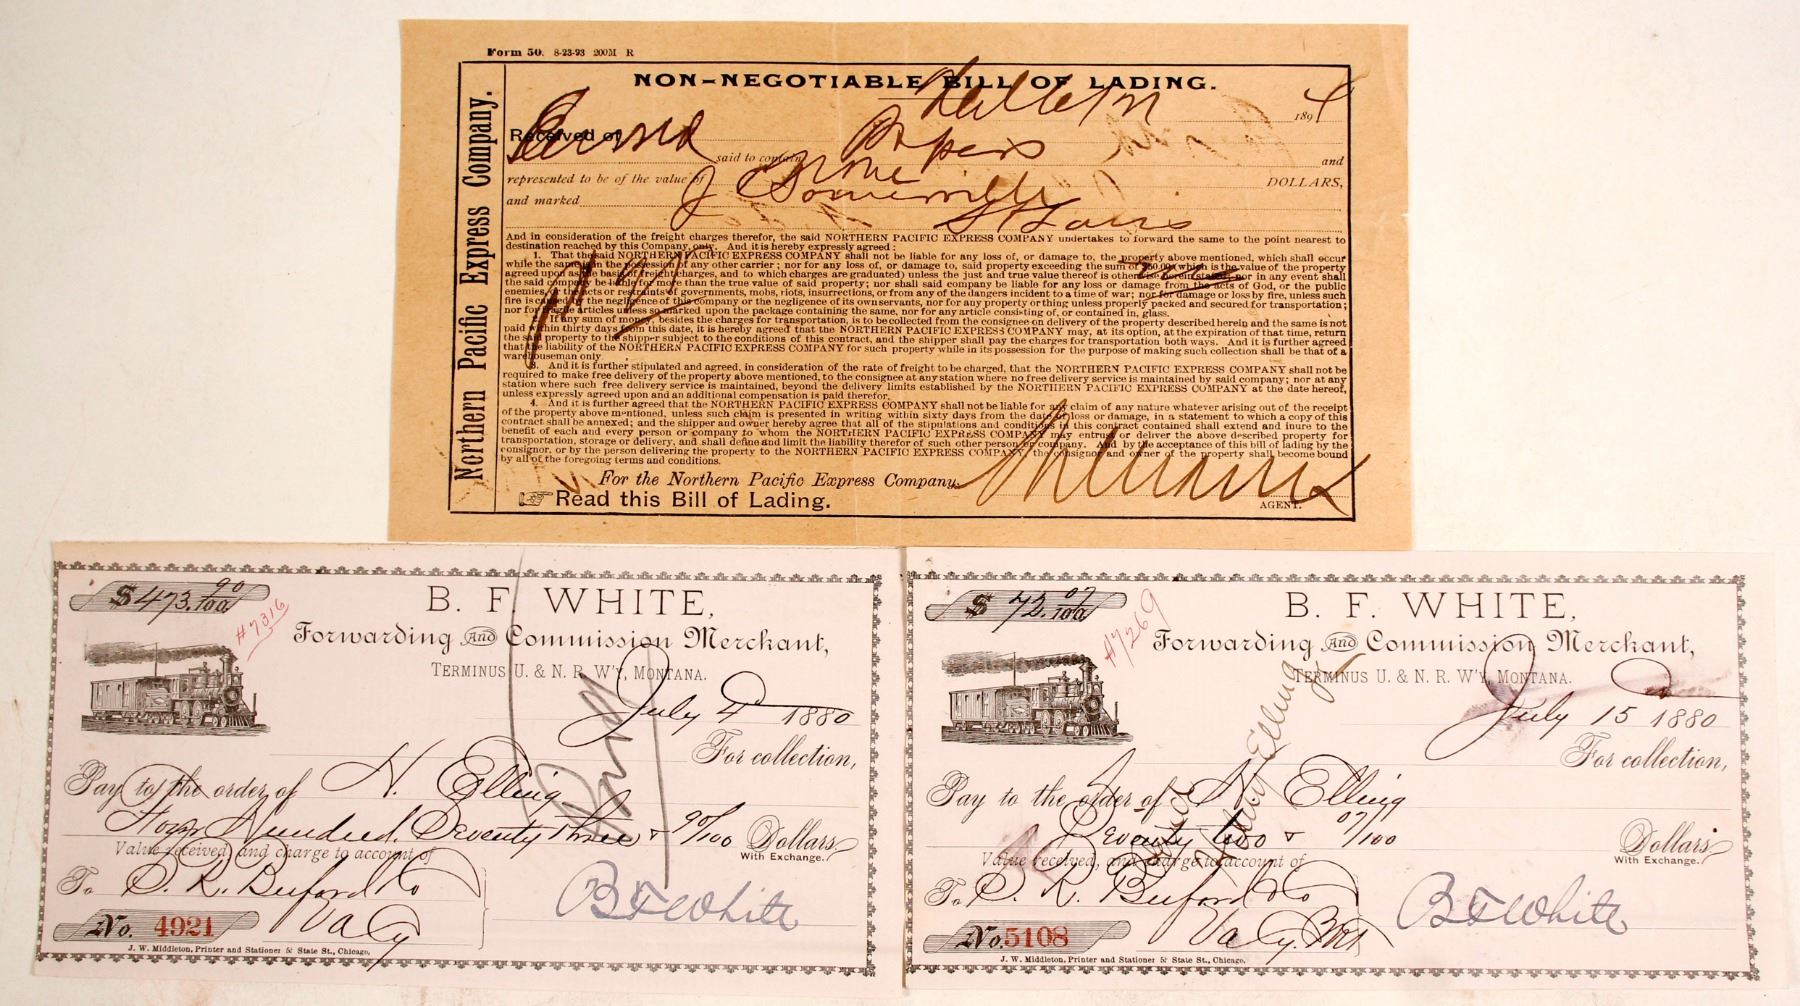 Form 50. 8-23-93 200M R
NON-NEGOTIABLE BILL OF LADING.
189 4
Northern Pacific Express Company.
Received of
said to contain Papers and
represented to be of the value of None DOLLARS,
and marked J C Somerville
St Louis
And in consideration of the freight charges therefor, the said NORTHERN PACIFIC EXPRESS COMPANY undertakes to forward the same to the point nearest to
destination reached by this Company, only. And it is hereby expressly agreed:
1. That the said NORTHERN PACIFIC EXPRESS COMPANY shall not be liable for any loss of, or damage to, the property above mentioned, which shall occur
while the same is in the possession of any other carrier; nor for any loss of, or damage to, said property exceeding the sum of $50.00 (which is the value of the property
agreed upon as the basis of freight charges, and to which charges are graduated) unless the just and true value thereof is otherwise herein stated; nor in any event shall
the said company be liable for more than the true value of said property; nor shall said company be liable for any loss or damage from the acts of God, or the public
enemies, or the acts or restraints of governments, mobs, riots, insurrections, or from any of the dangers incident to a time of war; nor for damage or loss by fire, unless such
fire is caused by the negligence of this company or the negligence of its own servants, nor for any property or thing unless properly packed and secured for transportation;
nor for fragile articles unless so marked upon the package containing the same, nor for any article consisting of, or contained in, glass.
2. If any sum of money, besides the charges for transportation, is to be collected from the consignee on delivery of the property described herein and the same is not
paid within thirty days from this date, it is hereby agreed that the NORTHERN PACIFIC EXPRESS COMPANY may, at its option, at the expiration of that time, return
the said property to the shipper subject to the conditions of this contract, and the shipper shall pay the charges for transportation both ways. And it is further agreed
that the liability of the NORTHERN PACIFIC EXPRESS COMPANY for such property while in its possession for the purpose of making such collection shall be that of a
warehouseman only.
3. And it is further stipulated and agreed, in consideration of the rate of freight to be charged, that the NORTHERN PACIFIC EXPRESS COMPANY shall not be
required to make free delivery of the property above mentioned, to the consignee at any station where no free delivery service is maintained by said company; nor at any
station where such free delivery service is maintained, beyond the delivery limits established by the NORTHERN PACIFIC EXPRESS COMPANY at the date hereof,
unless expressly agreed upon and an additional compensation is paid therefor.
4. And it is further agreed that the NORTHERN PACIFIC EXPRESS COMPANY shall not be liable for any claim of any nature whatever arising out of the receipt
of the property above mentioned, unless such claim is presented in writing within sixty days from the date of loss or damage, in a statement to which a copy of this
contract shall be annexed; and the shipper and owner hereby agree that all of the stipulations and conditions in this contract contained shall extend and inure to the
benefit of each and every person or company to whom the NORTHERN PACIFIC EXPRESS COMPANY may entrust or deliver the above described property for
transportation, storage or delivery, and shall define and limit the liability therefor of such other person or company. And by the acceptance of this bill of lading by the
consignor, or by the person delivering the property to the NORTHERN PACIFIC EXPRESS COMPANY, the consignor and owner of the property shall become bound
by all of the foregoing terms and conditions.
For the Northern Pacific Express Company,
Read this Bill of Lading.
AGENT.
$ 473.90/100
#7316
B. F. WHITE,
Forwarding And Commission Merchant,
TERMINUS U. & N. R. W'Y, MONTANA.
July 4th 1880
For collection,
Pay to the order of H. Elling
Four Hundred Seventy three & 90/100 Dollars
With Exchange.
Value received, and charge to account of
To S. R. Buford & Co
B F White
Va Cy
No. 4921
J. W. Middleton, Printer and Stationer 55 State St., Chicago.
$ 72.07/100
#7269
B. F. WHITE,
Forwarding And Commission Merchant,
TERMINUS U. & N. R. W'Y, MONTANA.
July 15 1880
For collection,
Pay to the order of H Elling
Seventy two & 07/100 Dollars
With Exchange.
Value received, and charge to account of
To S. R. Buford & Co
B F White
Va Cy Mt
No. 5108
J. W. Middleton, Printer and Stationer 55 State St., Chicago.